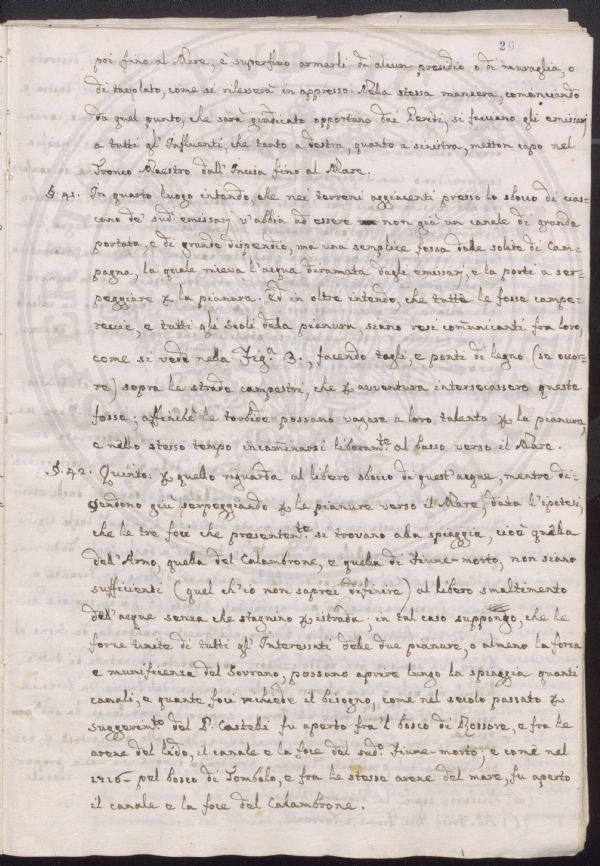 20
poi fino al Mare, è superfluo armarli di alcun presidio o di muraglia, o
di tavolato, come si rileverà in appresso. Nella stessa maniera, comenciando
da quel punto, che sarà giudicato opportuno dai Periti, si facciano gli emissarj
a tutti gl'Influenti che tanto a destra, quanto a sinistra, metton capo nel
Tronco Maestro dall'Incisa fino al Mare.
§. 41. In quarto luogo intendo, che nei terreni aggiacenti presso lo sbocco di cias-
cuno de' sud.i emissarj v'abbia ad essere non già un canale di grande
portata, e di grande dispendio, ma una semplice fossa delle solite di Cam-
pagna, la quale riceva l'acqua diramata dagli emissarj, e la porti a ser-
peggiare p la pianura. Ed in oltre intendo, che tutte le fosse campe-
reccie, e tutti gli scoli della pianura, siano resi comunicanti fra loro,
come si vede nella Fig.a 3., facendo tagli, e ponti di legno (se occor-
re) sopra le strade campestri, che p avventura intersecassero queste
fosse; affinchè le torbide possano vagare a loro talento p la pianura,
e nello stesso tempo incaminarsi liberam.te al basso verso il Mare.
§. 42. Quinto: p quello riguarda al libero sbocco di quest'acque, mentre di-
scendono giù serpeggiando p le pianure verso il Mare, data l'ipotesi,
che le tre foci che presentem.te si trovano alla spiaggia, cioè quella
dell'Arno, quella del Calambrone, e quella di Fiume-morto, non siano
sufficienti (quel ch'io non saprei difinire) al libero smaltimento
dell'acque senza che stagnino p istrada; in tal caso suppongo, che le
forze unite di tutti gl'Interesati delle due pianure, o almeno la forza
e munificienza del Sovrano, possano aprire lungo la spiaggia quanti
canali, e quante foci richiede il bisogno, come nel secolo passato p
suggerim.to del P. Castelli fu aperto fra 'l bosco di Mossore, e fra le
arene del lido, il canale e la foce del sud.o Fiume-morto, e come nel
1716 pel bosco di Tombolo, e fra le stesse arene del mare, fu aperto
il canale e la foce del Calambrone.